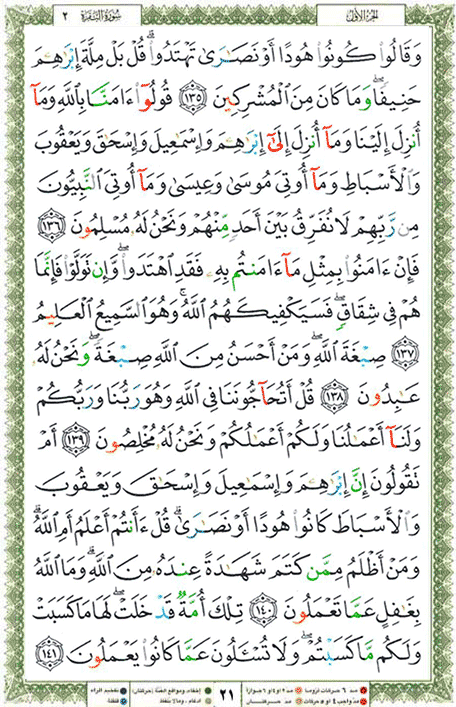 الجزء الأول
سورة البقرة ٢
وَقَالُوا۟ كُونُوا۟ هُودًا أَوْ نَصَـٰرَىٰ تَهْتَدُوا۟ ۗ قُلْ بَلْ مِلَّةَ إِبْرَٰهِـۧمَ
حَنِيفًا ۖ وَمَا كَانَ مِنَ ٱلْمُشْرِكِينَ ١٣٥ قُولُوٓا۟ ءَامَنَّا بِٱللَّهِ وَمَآ
أُنزِلَ إِلَيْنَا وَمَآ أُنزِلَ إِلَىٰٓ إِبْرَٰهِـۧمَ وَإِسْمَـٰعِيلَ وَإِسْحَـٰقَ وَيَعْقُوبَ
وَٱلْأَسْبَاطِ وَمَآ أُوتِىَ مُوسَىٰ وَعِيسَىٰ وَمَآ أُوتِىَ ٱلنَّبِيُّونَ
مِن رَّبِّهِمْ لَا نُفَرِّقُ بَيْنَ أَحَدٍ مِّنْهُمْ وَنَحْنُ لَهُۥ مُسْلِمُونَ ١٣٦
فَإِنْ ءَامَنُوا۟ بِمِثْلِ مَآ ءَامَنتُم بِهِۦ فَقَدِ ٱهْتَدَوا۟ ۖ وَّإِن تَوَلَّوْا۟ فَإِنَّمَا
هُمْ فِى شِقَاقٍ ۖ فَسَيَكْفِيكَهُمُ ٱللَّهُ ۚ وَهُوَ ٱلسَّمِيعُ ٱلْعَلِيمُ
١٣٧ صِبْغَةَ ٱللَّهِ ۖ وَمَنْ أَحْسَنُ مِنَ ٱللَّهِ صِبْغَةً ۖ وَنَحْنُ لَهُۥ
عَـٰبِدُونَ ١٣٨ قُلْ أَتُحَآجُّونَنَا فِى ٱللَّهِ وَهُوَ رَبُّنَا وَرَبُّكُمْ
وَلَنَآ أَعْمَـٰلُنَا وَلَكُمْ أَعْمَـٰلُكُمْ وَنَحْنُ لَهُۥ مُخْلِصُونَ ١٣٩ أَمْ
نَقُولُونَ إِنَّ إِبْرَٰهِـۧمَ وَإِسْمَـٰعِيلَ وَإِسْحَـٰقَ وَيَعْقُوبَ
وَٱلْأَسْبَاطَ كَانُوا۟ هُودًا أَوْ نَصَـٰرَىٰ ۗ قُلْ ءَأَنتُمْ أَعْلَمُ أَمِ ٱللَّهُ ۗ
وَمَنْ أَظْلَمُ مِمَّن كَتَمَ شَهَـٰدَةً عِندَهُۥ مِنَ ٱللَّهِ ۗ وَمَا ٱللَّهُ
بِغَـٰفِلٍ عَمَّا تَعْمَلُونَ ١٤٠ تِلْكَ أُمَّةٌ قَدْ خَلَتْ ۖ لَهَا مَا كَسَبَتْ
وَلَكُم مَّا كَسَبْتُمْ ۖ وَلَا تُسْـَٔلُونَ عَمَّا كَانُوا۟ يَعْمَلُونَ ١٤١
مد ٦ حركات لزوماً مد ٢ او ٤ او ٦ جوازاً
مد واجب ٤ او ٥ حركات مد حركتان
٢١
إخفاء، ومواقع الغنة (حركتان) تفخيم الراء
إدغام، وما لا يلفظ قلقلة